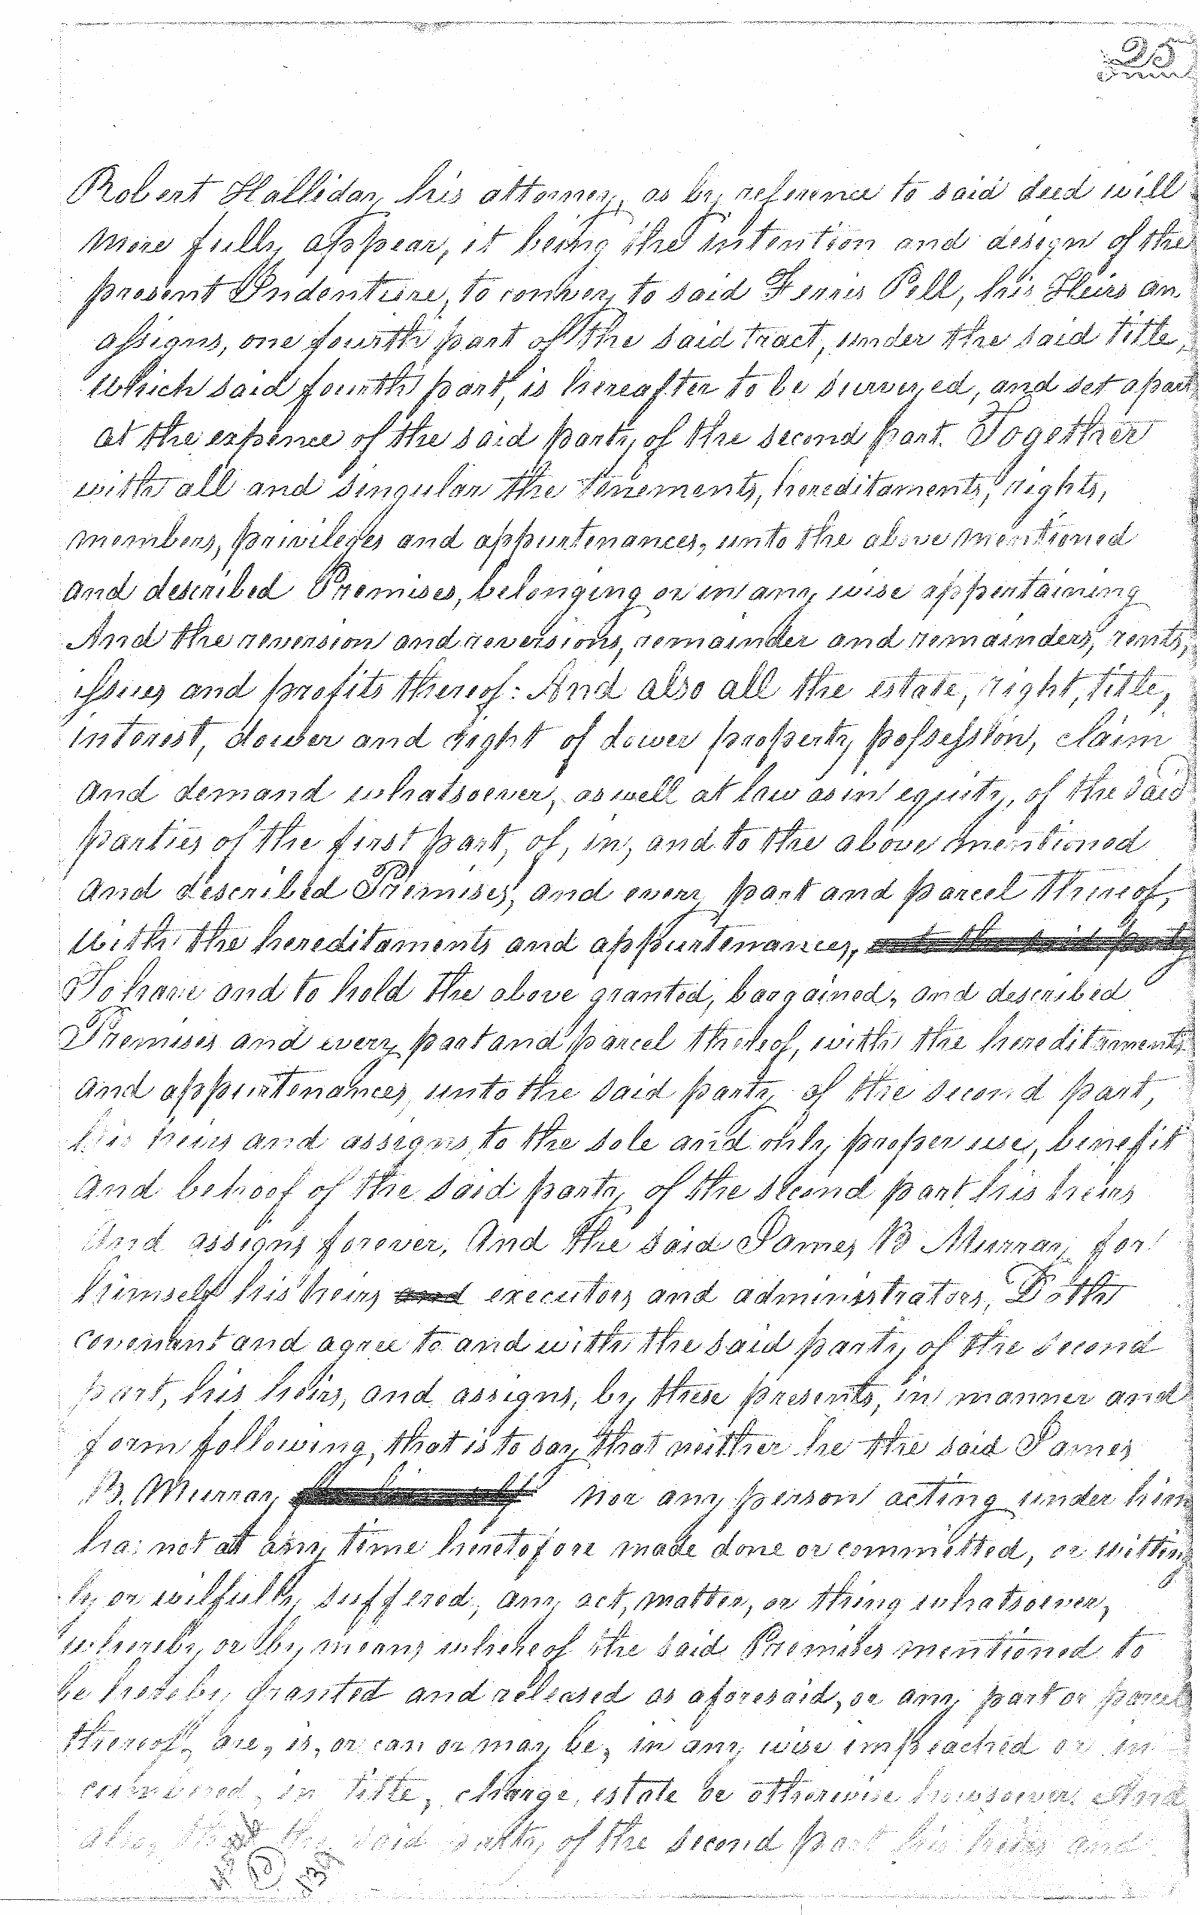 25
Robert Halliday his attorney, as by reference to said deed will
more fully appear, it being the intention and design of the
present Indenture, to convey to said Ferris Pell, his Heirs an
assigns, one fourth part of the said tract, under the said title,
which said fourth part, is hereafter to be surveyed, and set apart
at the expence of the said party of the second part. Together
with all and singular the tenements, hereditaments, rights,
members, privileges and appurtenances, unto the above mentioned
and described Premises, belonging or in any wise appertaining
And the reversion and reversions, remainder and remainders, rents,
issues and profits thereof: And also all the estate, right, title,
interest, dower and right of dower property possession, claim
and demand whatsoever, as well at law as in equity, of the said
parties of the first part, of, in, and to the above mentioned
and described Premises, and every part and parcel thereof,
with the hereditaments and appurtenances, unto the said party
To have and to hold the above granted, bargained, and described
Premises and every part and parcel thereof, with the hereditaments
and appurtenances, unto the said party of the second part,
his heirs and assigns, to the sole and only proper use, benefit
and behoof of the said party of the second part his heirs
And assigns forever. And the said James B Murray for
himself his heirs and executors and administrators, Doth
covenant and agree to and with the said party of the second
part, his heirs, and assigns, by these presents, in manner and
form following, that is to say that neither he the said James
B. Murray nor any person acting under him
has not at any time heretofore made done or committed, or witting
ly or wilfully suffered, any act, matter, or thing whatsoever,
whereby or by means whereof the said Premises mentioned to
be hereby granted and released as aforesaid, or any part or parcel
thereof, are, is, or can or may be, in any wise impeached or in
cumbered, in title, charge, estate or otherwise howsoever. And
also, that the said party of the second part his heirs and